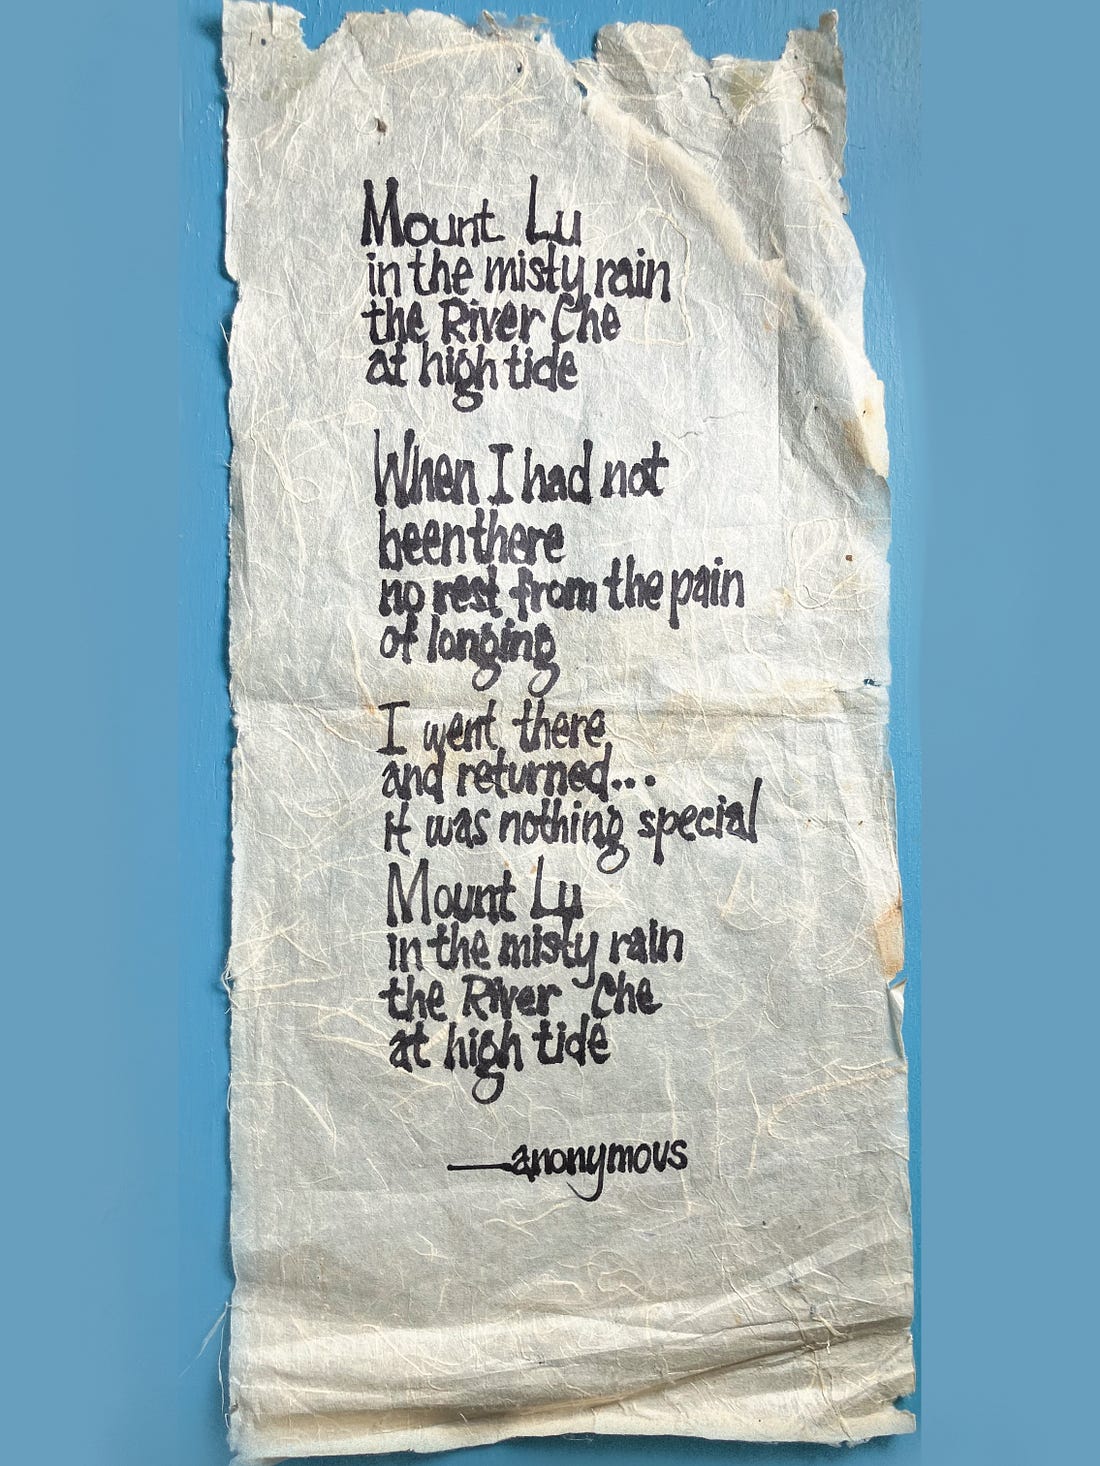 Mount Lu
in the misty rain
the River Che
at high tide
When I had not
been there
no rest from the pain
of longing
I went there
and returned...
it was nothing special
Mount Lu
in the misty rain
the River Che
at high tide
—anonymous